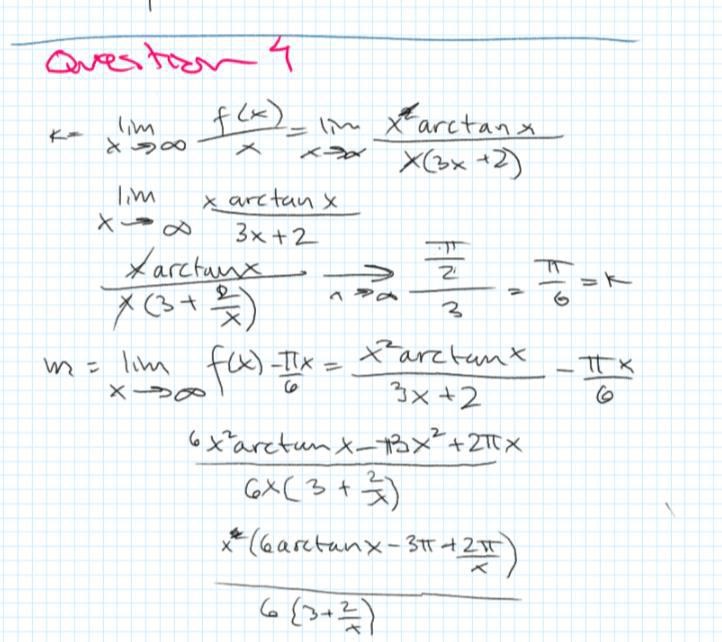 Question 4
k= lim x→∞ f(x)/x = lim x→∞ x² arctan x / x(3x+2)
lim x→∞ x arctan x / 3x+2
x arctan x / x(3 + 2/x) → n→∞ π/2 / 3 = π/6 = k
m = lim x→∞ f(x) - πx/6 = x² arctan x / 3x+2 - πx/6
6x² arctan x - π3x² + 2πx / 6x(3 + 2/x)
x²(6 arctan x - 3π + 2π/x) / 6(3+2/x)